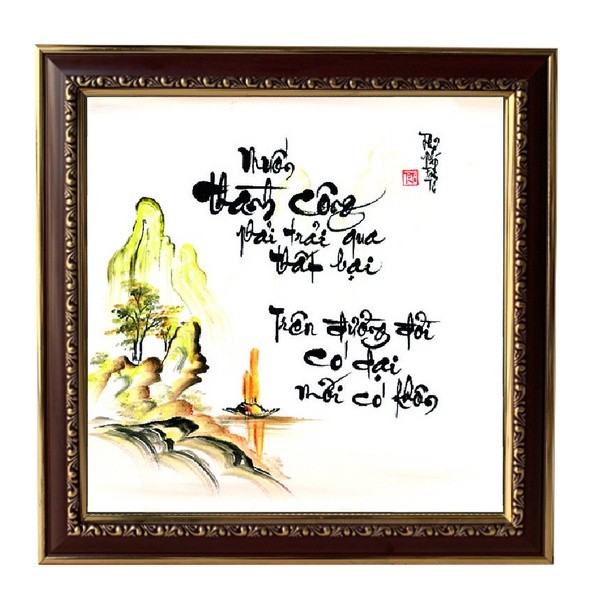 Muốn
thành công
phải trải qua
thất bại
Trên đường đời
có dại
mới có khôn